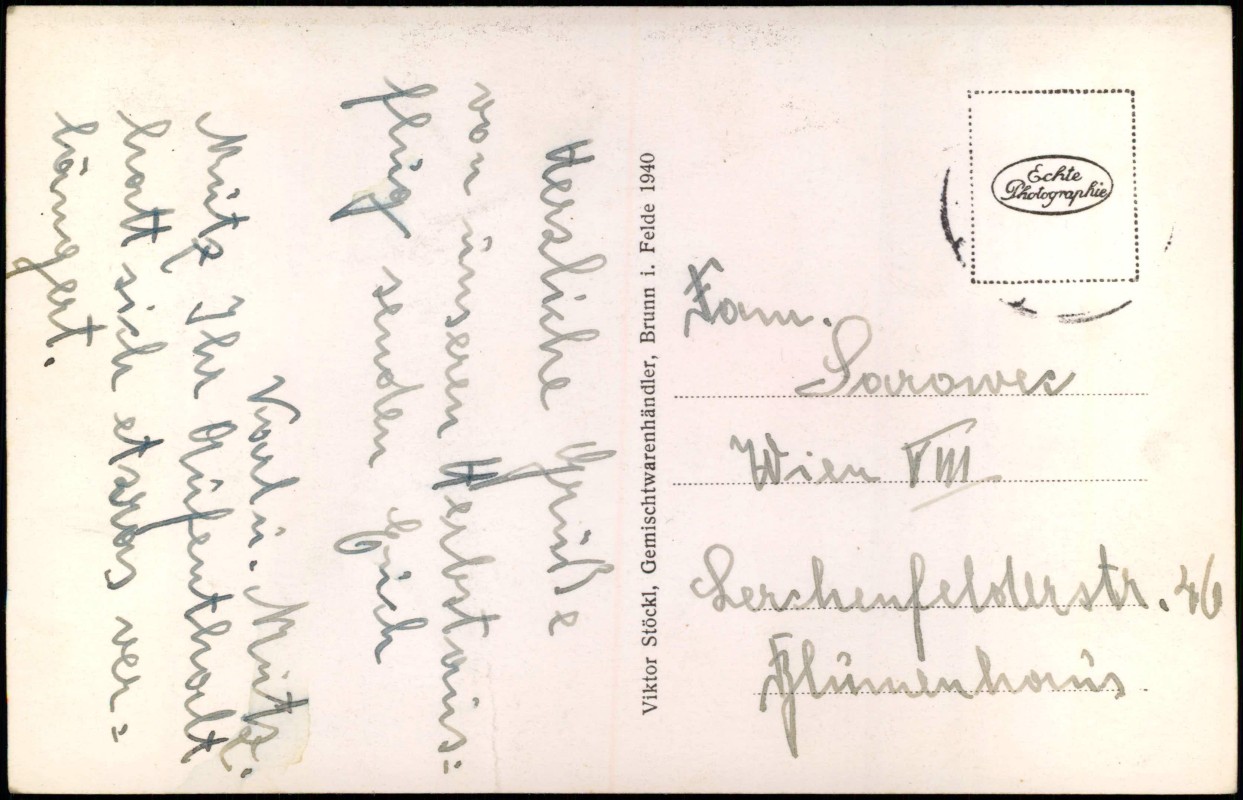 Herzliche Grüße
von unseren Herbstaus=
flug senden Euch
Karl u. Mutz.
Mutz Ihr Aufenthalt
hatt sich etwas ver=
längert.
Viktor Stöckl, Gemischtwarenhändler, Brunn i. Felde 1940
Echte
Photographie
Fam.
Wien VIII
Lerchenfelderstr. 46
Blumenhaus